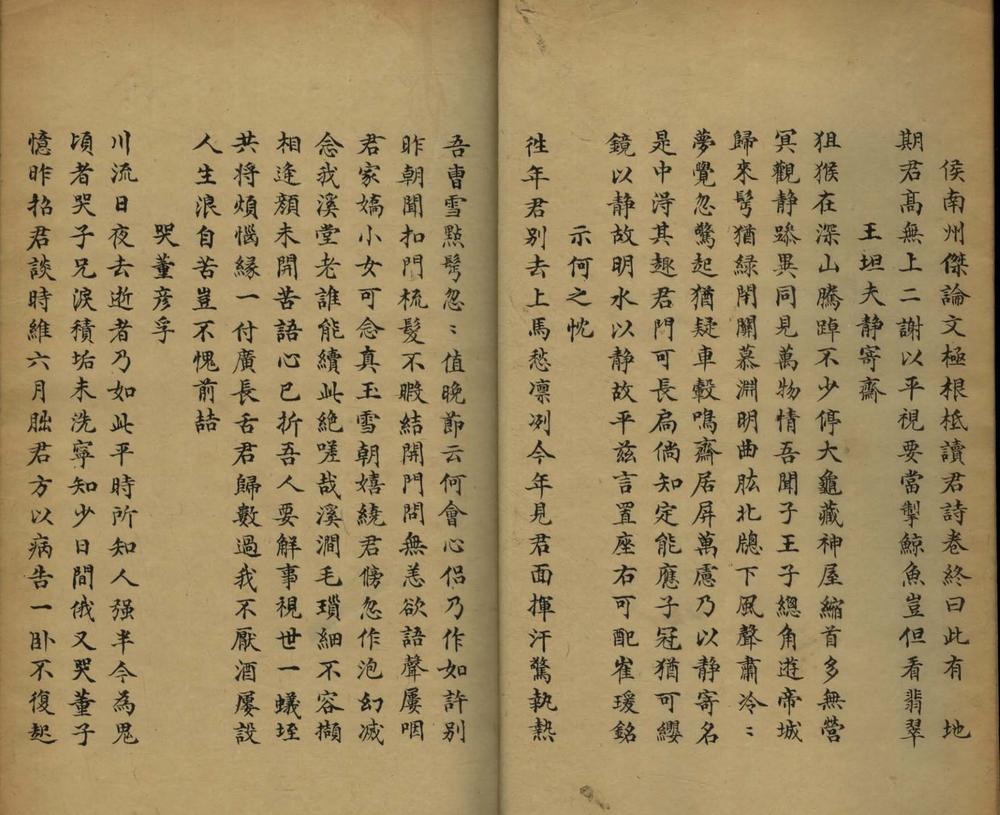 侯南州傑論文極根柢讀君詩卷終曰此有　地
期君高無上二謝以平視要當掣鯨魚豈但看翡翠
王坦夫静寄齋
狙猴在深山騰踔不少停大龜藏神屋縮首多無營
冥觀静躁異同見萬物情吾聞子王子總角遊帝城
歸來髩猶緑閉關慕淵明曲肱北牕下風聲肅泠〻
夢覺忽驚起猶疑車轂鳴齋居屏萬慮乃以静寄名
是中淂其趣君門可長扃倘知定能應子冠猶可纓
鏡以静故明水以静故平兹言置座右可配崔瑗銘
示何之忱
徃年君别去上馬愁凛冽今年見君面揮汗驚執熱
吾曹雪㸃髩忽〻值晚節云何會心侣乃作如許别
昨朝聞扣門梳髪不暇結開門問無恙欲語聲屢咽
君家嬌小女可念真玉雪朝嬉繞君傍忽作泡幻滅
念我溪堂老誰能續此絶嗟哉溪澗毛瑣細不容擷
相逢顔未開苦語心已折吾人要解事視世一蟻垤
共将煩惱縁一付廣長舌君歸數過我不厭酒屢設
人生浪自苦豈不愧前喆
哭董彦孚
川流日夜去逝者乃如此平時所知人强半今為鬼
頃者哭子兄淚積垢未洗寧知少日間俄又哭董子
憶昨招君談時維六月朏君方以病告一卧不復起